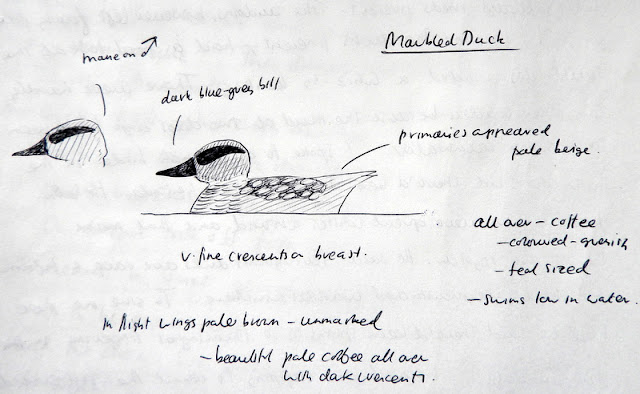 Marbled Duck
mane on ♂
dark blue-grey bill
primaries appeared
pale beige.
all over - coffee
- coloured - greyish
- teal sized
- swims low in water.
v. fine crescents on breast.
In flight wings pale brown - unmarked
- beautiful pale coffee all over
with dark crescents.